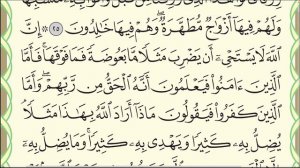 وَلَهُمْ فِيهَآ أَزْوَٰجٌ مُّطَهَّرَةٌ ۖ وَهُمْ فِيهَا خَٰلِدُونَ ٢٥ ۞ إِنَّ
ٱللَّهَ لَا يَسْتَحْىِۦٓ أَن يَضْرِبَ مَثَلًا مَّا بَعُوضَةً فَمَا فَوْقَهَا ۚ فَأَمَّا
ٱلَّذِينَ ءَامَنُوا۟ فَيَعْلَمُونَ أَنَّهُ ٱلْحَقُّ مِن رَّبِّهِمْ ۖ وَأَمَّا
ٱلَّذِينَ كَفَرُوا۟ فَيَقُولُونَ مَاذَآ أَرَادَ ٱللَّهُ بِهَٰذَا مَثَلًا ۘ
يُضِلُّ بِهِۦ كَثِيرًا وَيَهْدِى بِهِۦ كَثِيرًا ۚ وَمَا يُضِلُّ بِهِۦٓ